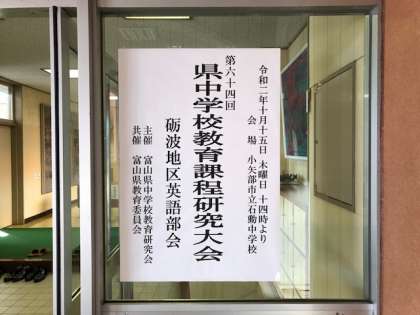 令和二年十月十五日 木曜日 十四時より
会場 小矢部市立石動中学校
第六十四回
県中学校教育課程研究大会
砺波地区英語部会
主催 富山県中学校教育研究会
共催 富山県教育委員会